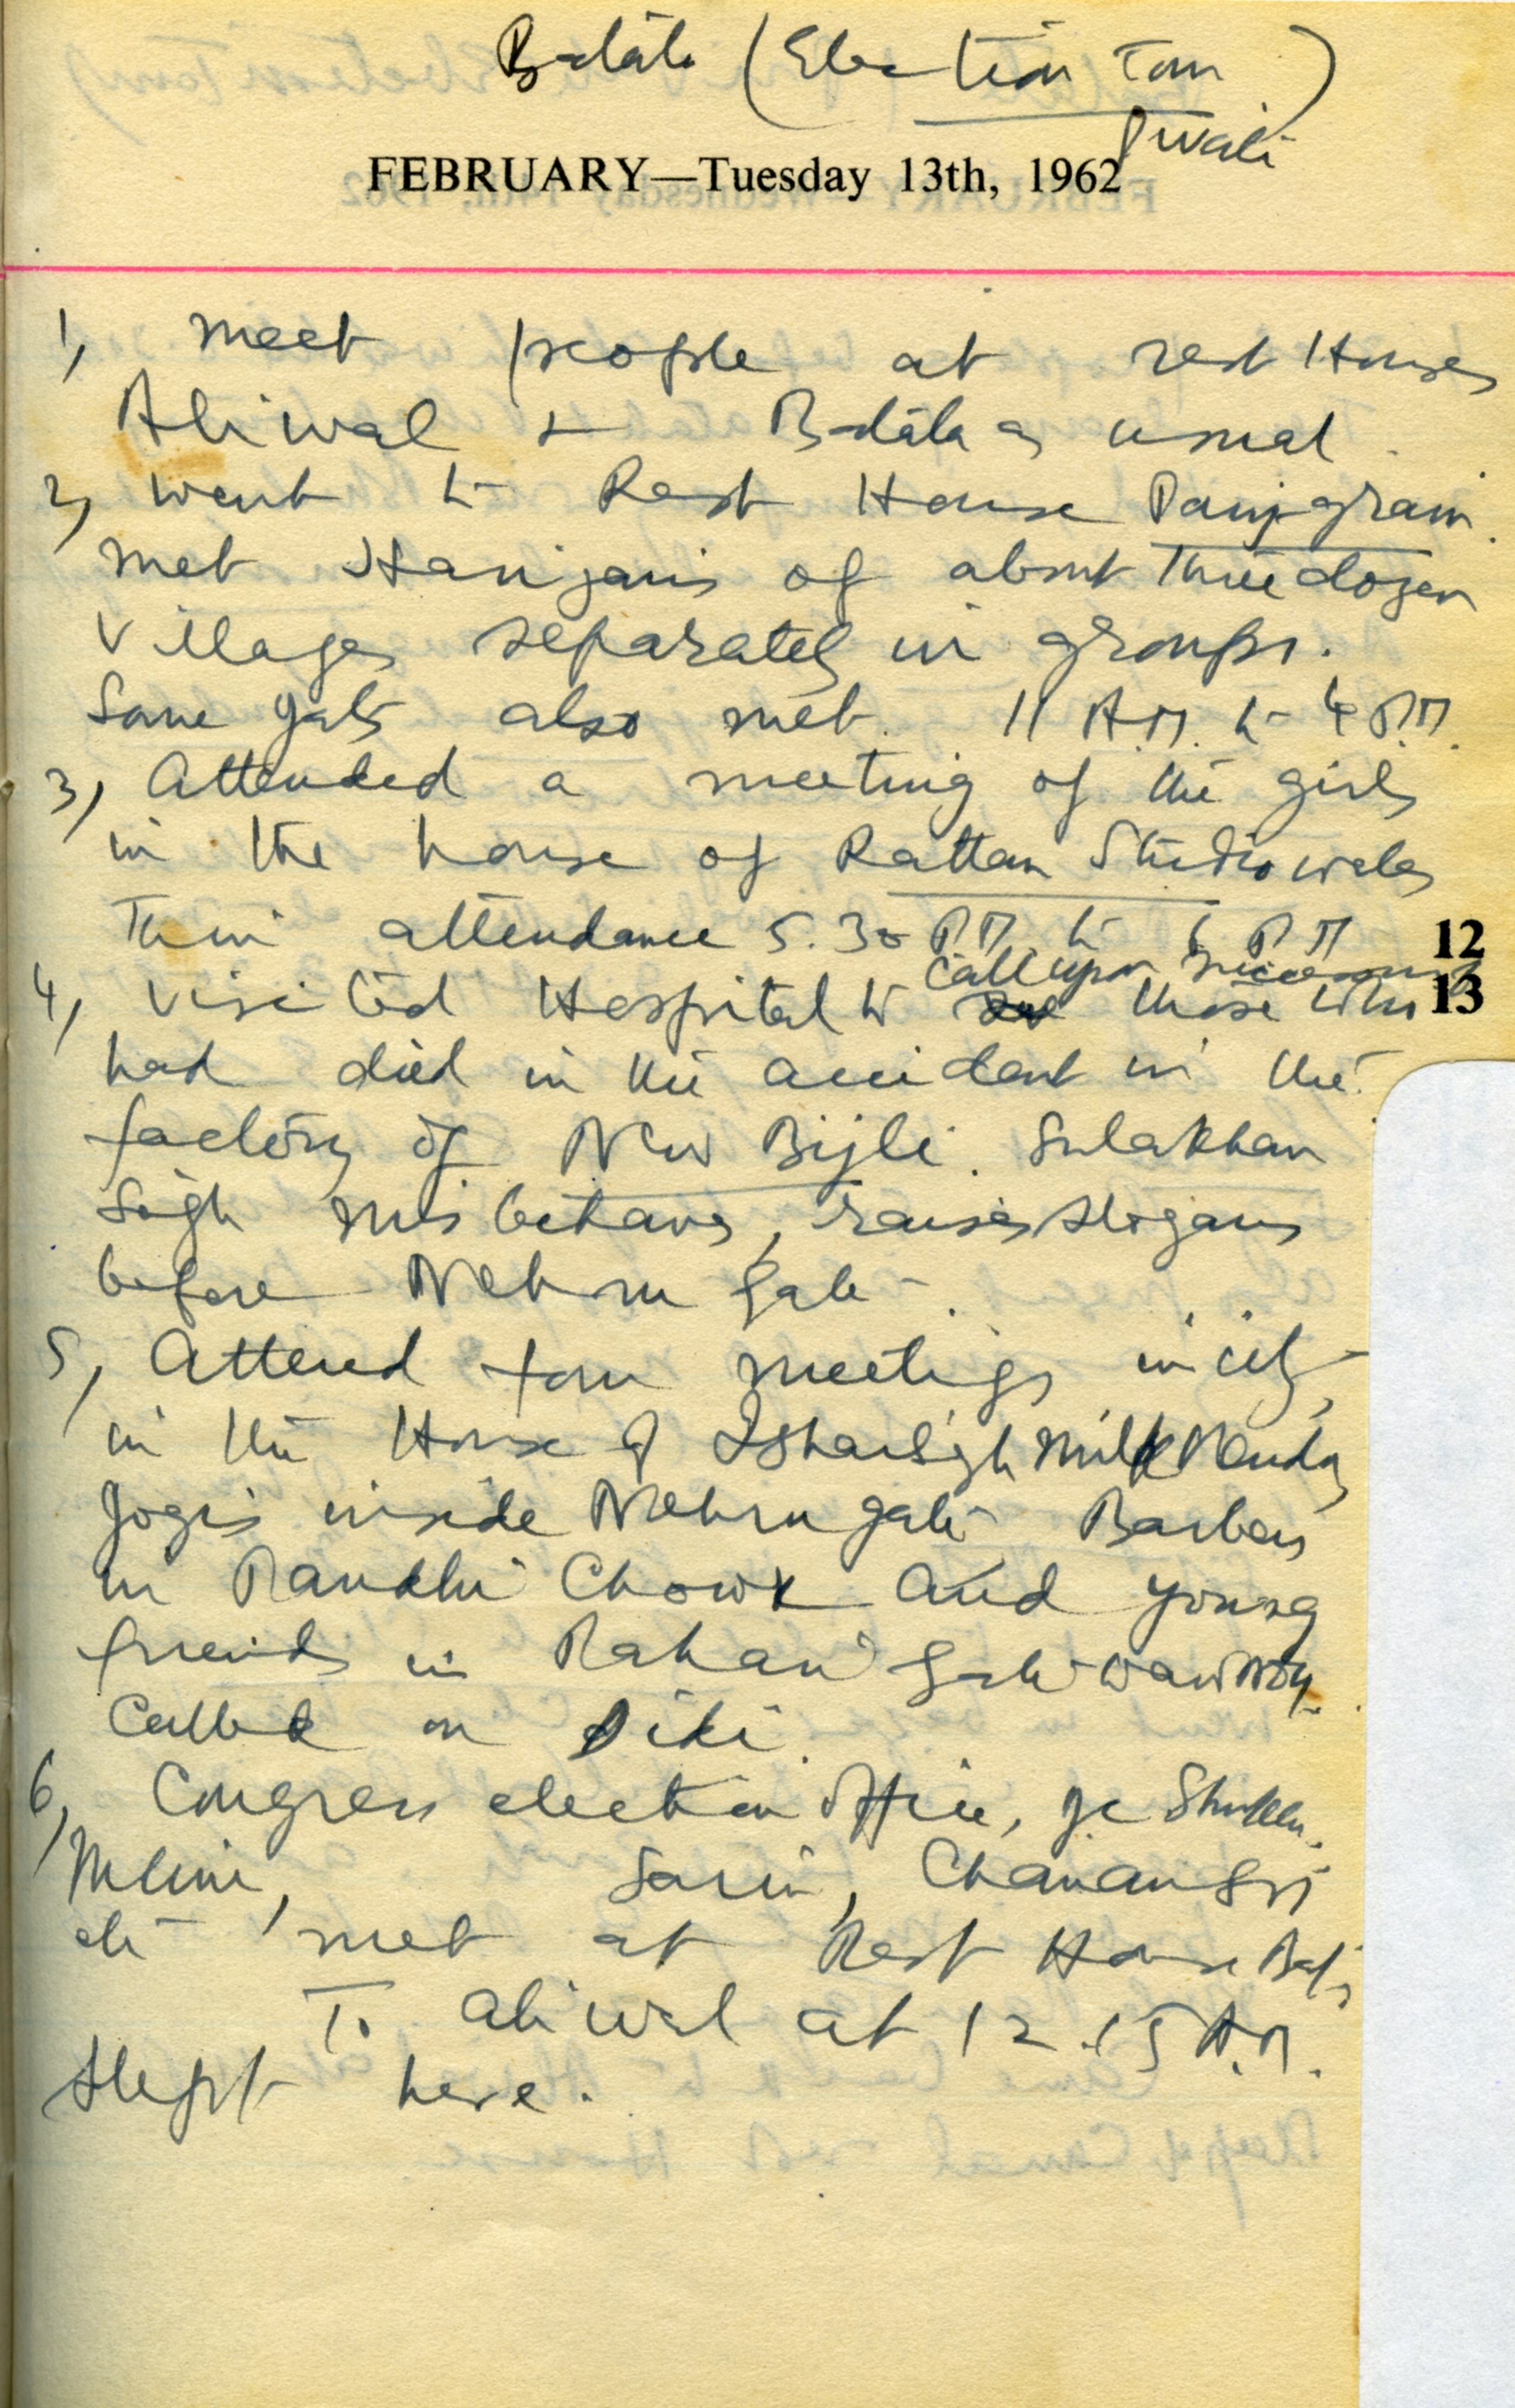 Batala (Election Tour
Private
FEBRUARY—Tuesday 13th, 1962
1, meet people at rest Houses
Aliwal & Batala as usual.
2, Went to Rest House Panjgrain.
met Harijans of about three dozen
Villages separately in groups.
Some Jats also met. 11 A.M. to 4 P.M.
3, Attended a meeting of the girls
in the house of Rattan Studio walas
Thin attendance 5.30 PM. to 6 PM
12
call upon
4, Visited Hospital to those who
13
had died in the accident in the
factory of New Bijli. Sulakhan
Singh misbehaves, raises slogans
before Nehru Gate.
5, Attend four meetings in city,
in the House of Isharsigh Milk Vendor,
Jogis inside Nehru gate Barbers
in Chowk and young
friends in Gate
Called on
6, Congress election office,
Sarin, Chanan
etc met at Rest House
To Aliwal at 12.15 A.M.
Slept here.